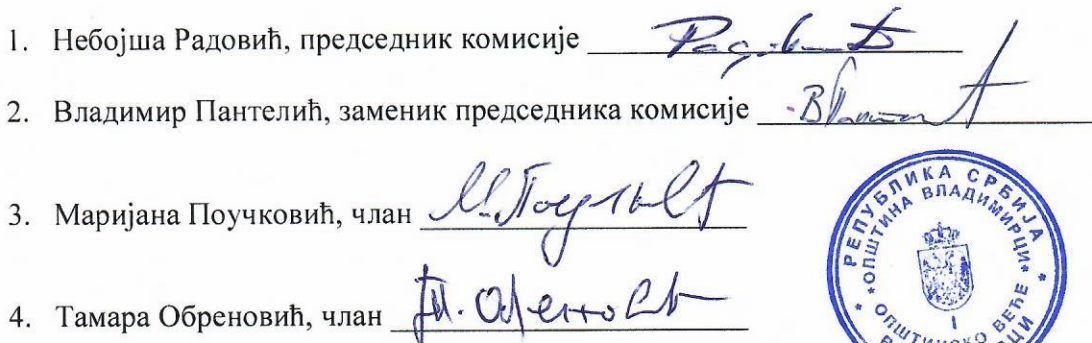 1. Небојша Радовић, председник комисије
2. Владимир Пантелић, заменик председника комисије
3. Маријана Поучковић, члан
4. Тамара Обреновић, члан
РЕПУБЛИКА СРБИЈА
ОПШТИНА ВЛАДИМИРЦИ
ОПШТИНСКО ВЕЋЕ
I